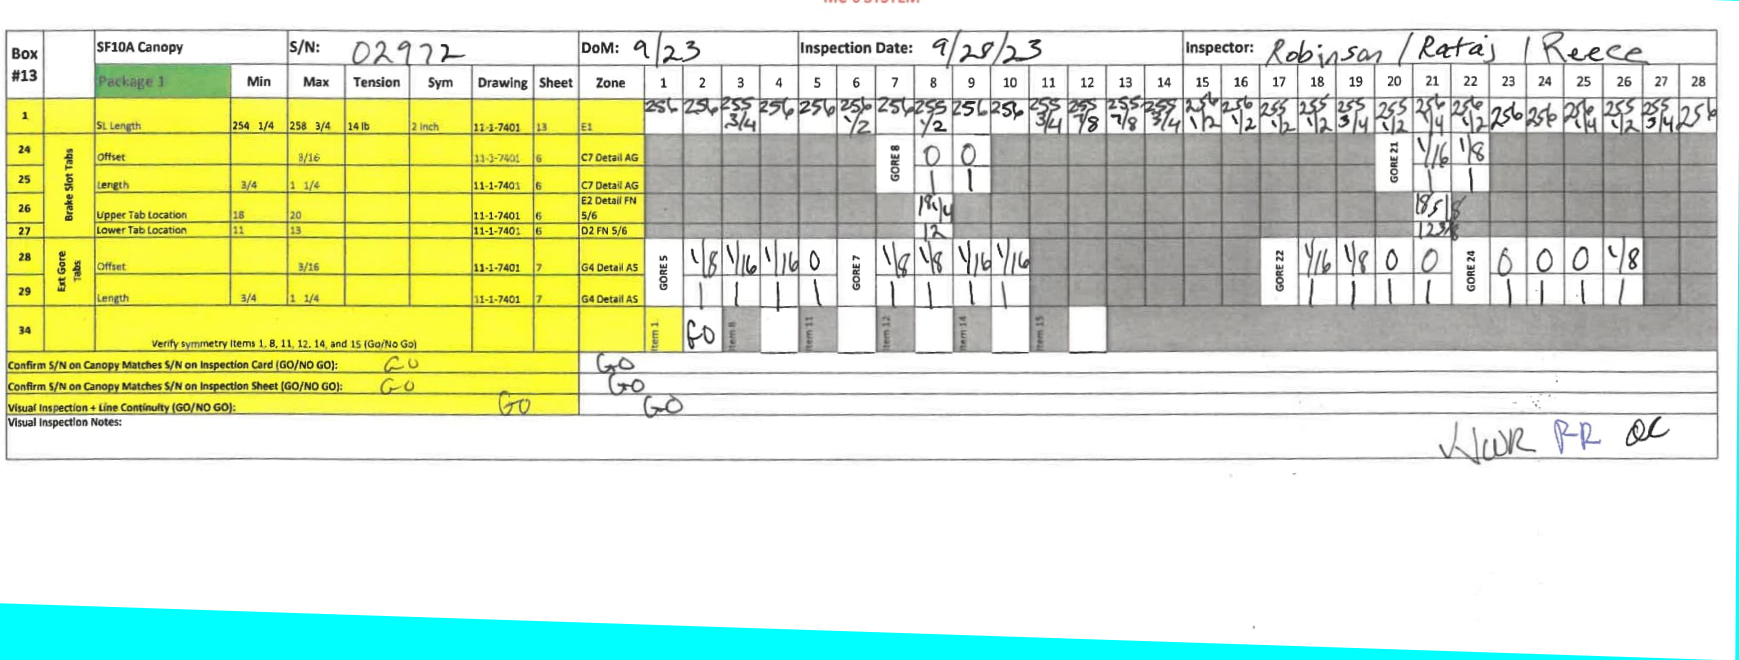 Box #13 SF10A Canopy S/N: 02972 DoM: 9/23 Inspection Date: 9/28/23 Inspector: Robinson / Rataj / Reece
Package 1 Min Max Tension Sym Drawing Sheet Zone 1 2 3 4 5 6 7 8 9 10 11 12 13 14 15 16 17 18 19 20 21 22 23 24 25 26 27 28
1 SL Length 254 1/4 258 3/4 14 lb 2 inch 11-1-7401 13 E1 256 256 255 3/4 256 256 256 1/2 256 255 1/2 256 256 255 3/4 255 7/8 255 7/8 255 3/4 256 1/2 256 1/2 255 1/2 255 1/2 255 3/4 255 1/2 256 1/4 256 1/2 256 256 256 1/4 255 1/2 255 3/4 256
Brake Slot Tabs
24 Offset 3/16 11-1-7401 6 C7 Detail AG GORE 8 0 0 GORE 21 1/16 1/8
25 Length 3/4 1 1/4 11-1-7401 6 C7 Detail AG 1 1 1 1
26 Upper Tab Location 18 20 11-1-7401 6 E2 Detail FN 5/6 18 1/4 18 5/8
27 Lower Tab Location 11 13 11-1-7401 6 D2 FN 5/6 12 12 3/8
Ext Gore Tabs
28 Offset 3/16 11-1-7401 7 G4 Detail AS GORE 5 1/8 1/16 1/16 0 GORE 7 1/8 1/8 1/16 1/16 GORE 22 1/16 1/8 0 0 GORE 24 0 0 0 1/8
29 Length 3/4 1 1/4 11-1-7401 7 G4 Detail AS 1 1 1 1 1 1 1 1 1 1 1 1 1 1 1 1
34 Verify symmetry Items 1, 8, 11, 12, 14, and 15 (Go/No Go) Item 1 GO Item 8 Item 11 Item 12 Item 14 Item 15
Confirm S/N on Canopy Matches S/N on Inspection Card (GO/NO GO): GO GO
Confirm S/N on Canopy Matches S/N on Inspection Sheet (GO/NO GO): GO GO
Visual Inspection + Line Continuity (GO/NO GO): GO GO
Visual Inspection Notes:
RR